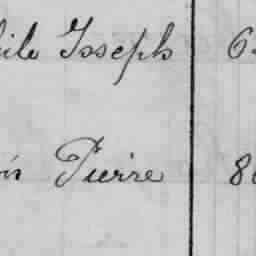 ile Joseph 6
is Pierre 8